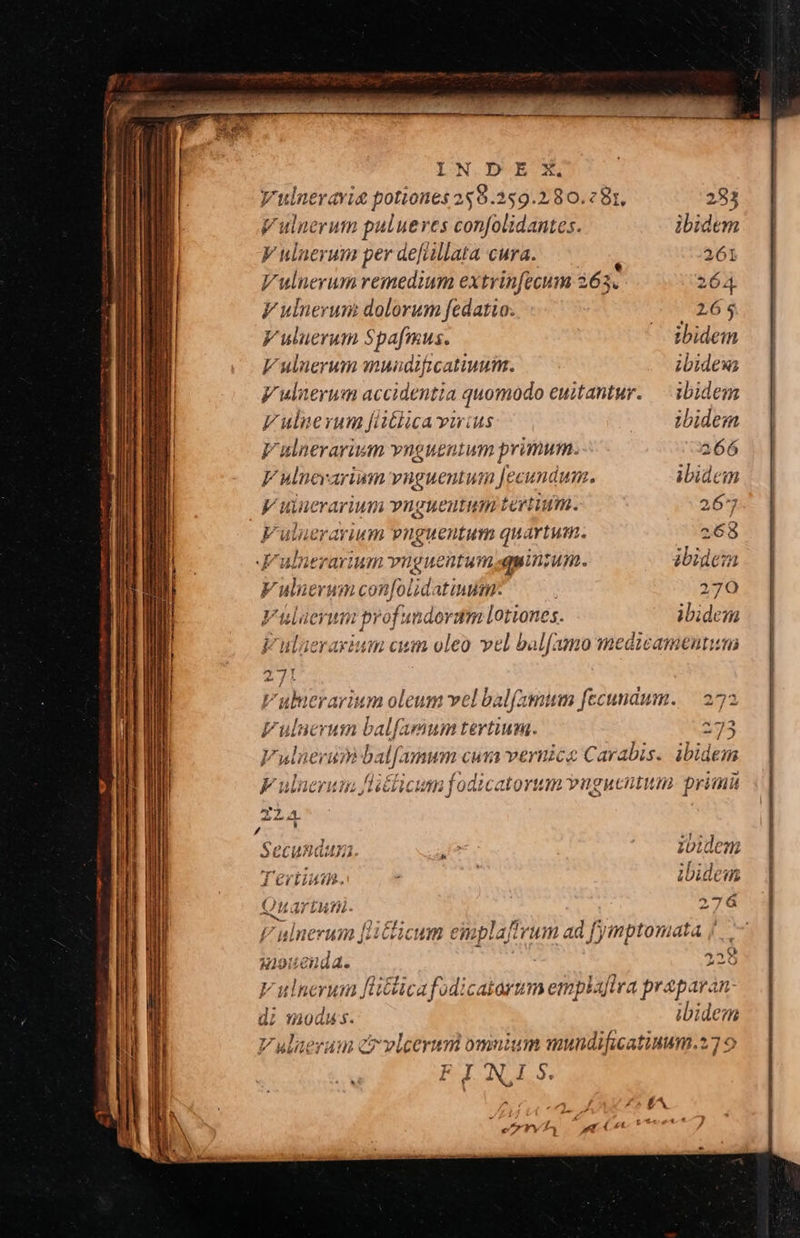 INDEX.
Vulnerariæ potiones 258.259.280.281, 283
Vulnerum pulueres conſolidantes. ibidem
Vulnerum per deſtillata cura. 261
Vulnerum remedium extrinſecum 263. 264
Vulnerum dolorum ſedatio. 265
Vulnerum Spaſmus. ibidem
Vulnerum mundificatiuum. ibidem
Vulnerum accidentia quomodo euitantur. ibidem
Vulnerum ſtictica virtus ibidem
Vulnerarium vnguentum primum. 266
Vulnerarium vnguentum ſecundum. ibidem
Vulnerarium vnguentum tertium. 267
Vulnerarium vnguentum quartum. 268
Vulnerarium vnguentum quintum. ibidem
Vulnerum conſolidatiuum. 270
Vulnerum profundorum lotiones. ibidem
Vulnerarium cum oleo vel balſamo medicamentum
271
Vulnerarium oleum vel balſamum ſecundum. 272
Vulnerum balſamum tertium. 273
Vulnerum balſamum cum vernice Carabis. ibidem
Vulnerum ſticticum fodicatorum vnguentum primū
224
Secundum. ibidem
Tertium. ibidem
Quartum. 276
Vulnerum ſticticum emplaſtrum ad ſymptomata
mouenda. 228
Vulnerum ſtictica fodicatorum emplaſtra præparan-
di modus. ibidem
Vulnerum & vlcerum omnium mundificatiuum. 279
FINIS.